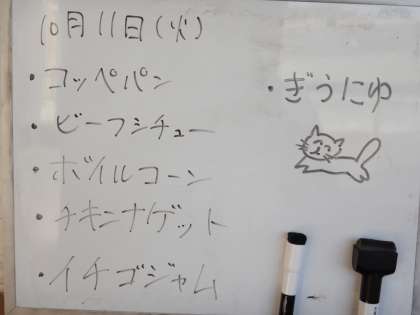 10月11日(火)
・コッペパン
・ビーフシチュー
・ボイルコーン
・チキンナゲット
・イチゴジャム
・ぎうにゆ